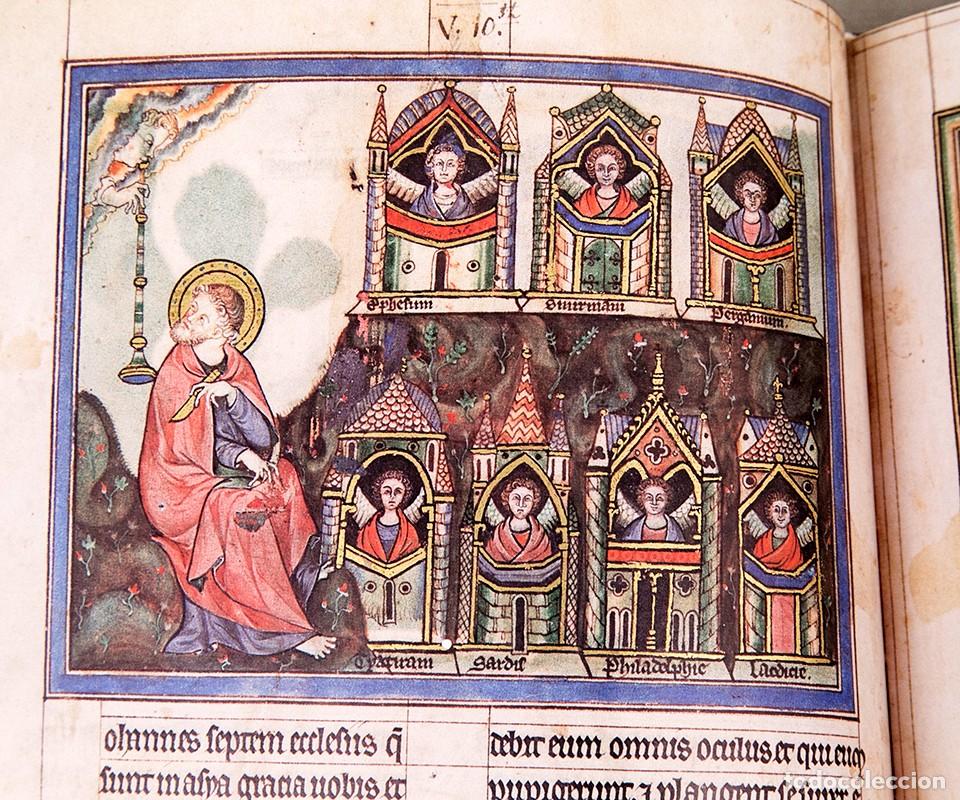 V. 10.
Ephesum Smirnam Perganium.
Tyatiram Sardis Philadelphie Laedicie.
ohannes septem ecclesiis q̄
sunt in asya gracia uobis et
debit eum omnis oculus et qui eum
pupigerunt. ⁊ plangent se super
todocoleccion